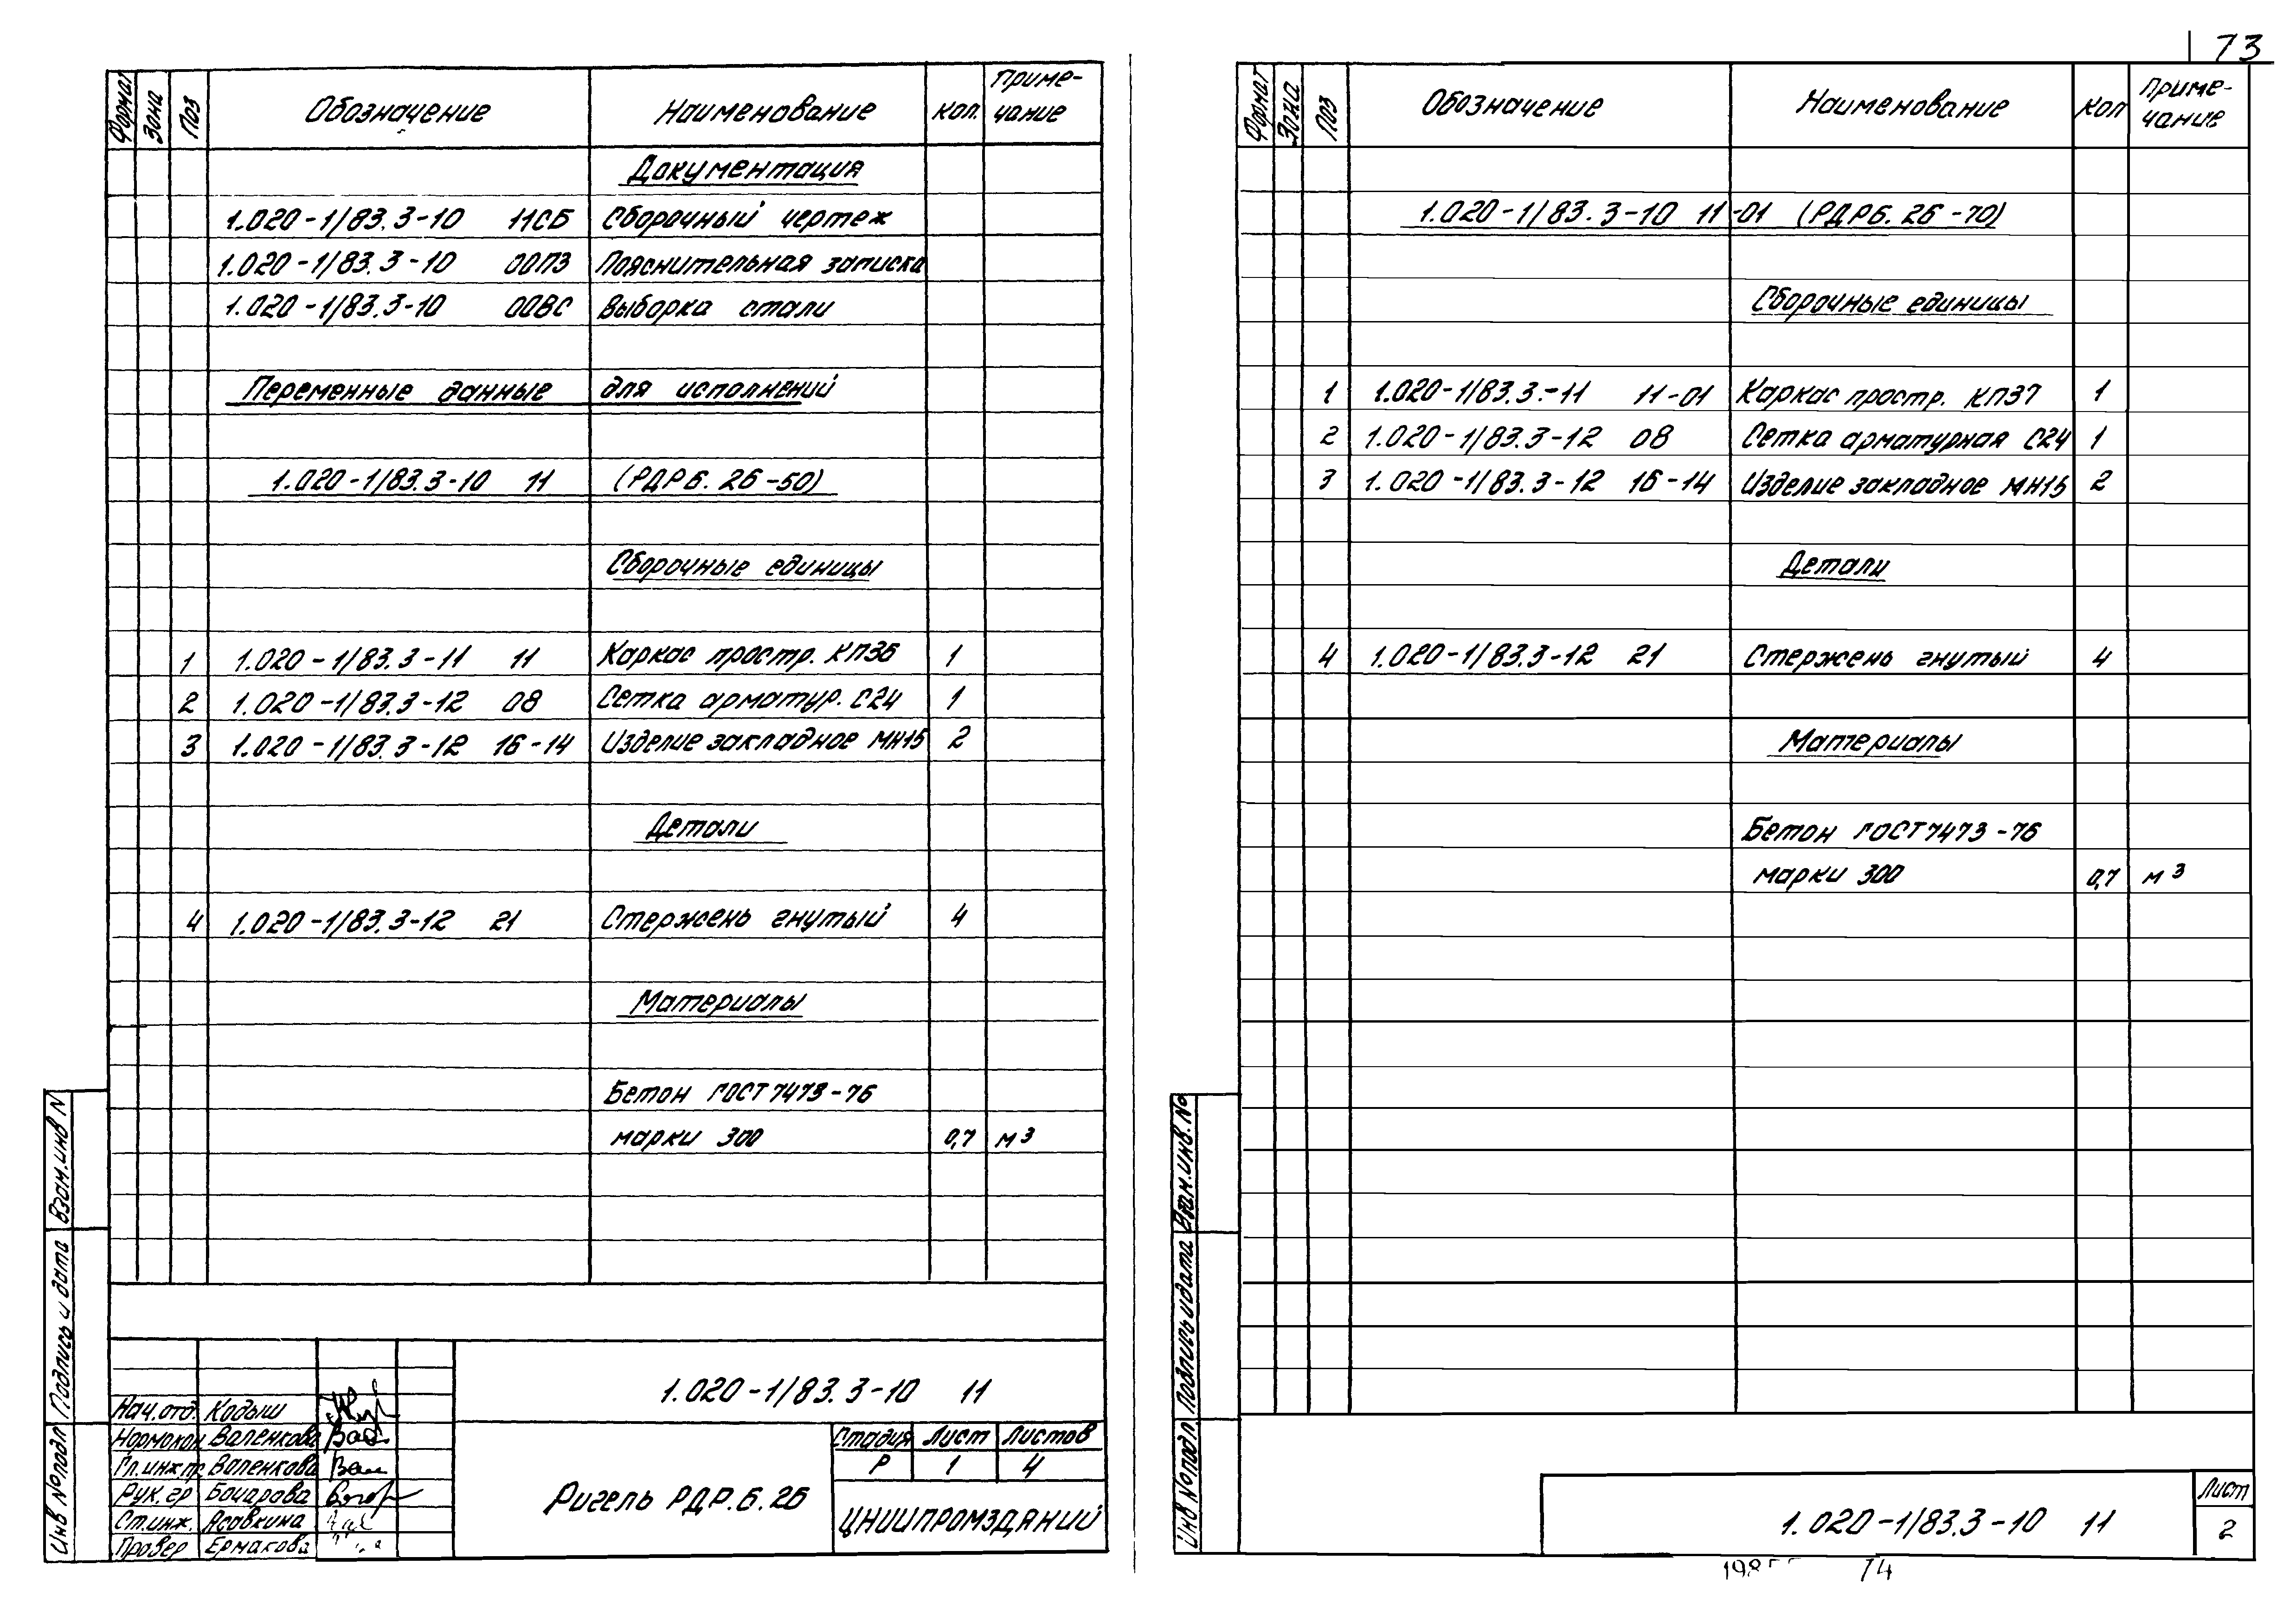 73
Формат Зона Поз Обозначение Наименование Кол. Приме-чание
Документация
1.020-1/83.3-10 11СБ Сборочный чертеж
1.020-1/83.3-10 00ПЗ Пояснительная записка
1.020-1/83.3-10 00ВС Выборка стали
Переменные данные для исполнений
1.020-1/83.3-10 11 (РДР6.26-50)
Сборочные единицы
1 1.020-1/83.3-11 11 Каркас простр. КП36 1
2 1.020-1/83.3-12 08 Сетка арматур. С24 1
3 1.020-1/83.3-12 16-14 Изделие закладное МН15 2
Детали
4 1.020-1/83.3-12 21 Стержень гнутый 4
Материалы
Бетон ГОСТ 7473-76
марки 300 0,7 м3
Взам.инв N
Подпись и дата
Инв № подл
Нач.отд. Кодыш
Нормокон Валенкова
Гл.инж.пр Валенкова
Рук.гр Бочарова
Ст.инж. Асавкина
Провер Ермакова
1.020-1/83.3-10 11
Ригель РДР.6.26
Стадия Лист Листов
Р 1 4
ЦНИИПРОМЗДАНИЙ
Формат Зона Поз Обозначение Наименование Кол Приме-чание
1.020-1/83.3-10 11-01 (РДР6.26-70)
Сборочные единицы
1 1.020-1/83.3-11 11-01 Каркас простр. КП37 1
2 1.020-1/83.3-12 08 Сетка арматурная С24 1
3 1.020-1/83.3-12 16-14 Изделие закладное МН15 2
Детали
4 1.020-1/83.3-12 21 Стержень гнутый 4
Материалы
Бетон ГОСТ 7473-76
марки 300 0,7 м3
Взам.инв.№
Подпись и дата
Инв № подл
1.020-1/83.3-10 11
Лист
2
74